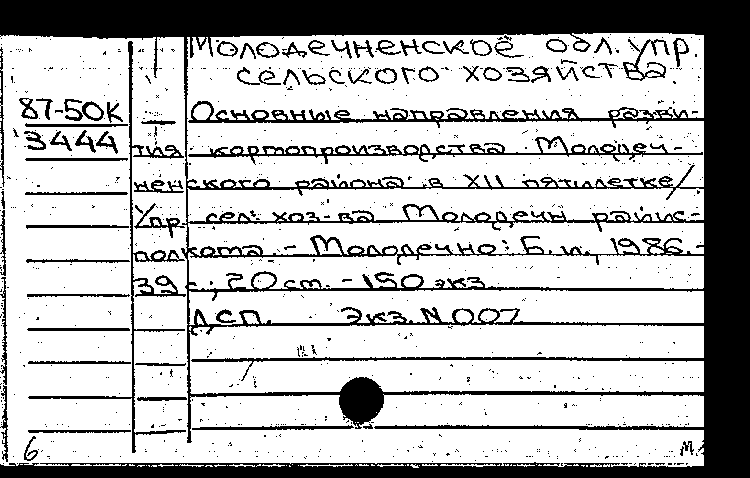 Молодечненское обл. упр.
сельского хозяйства.
87-50К — Основные направления разви-
3444 тия кормопроизводства Молодеч-
ненского района в XII пятилетке/
Упр. сел. хоз-ва Молодечн. райис-
полкома. - Молодечно: Б. и., 1986. -
39 с.; 20 см. - 150 экз.
ДСП. Экз. N 007
6